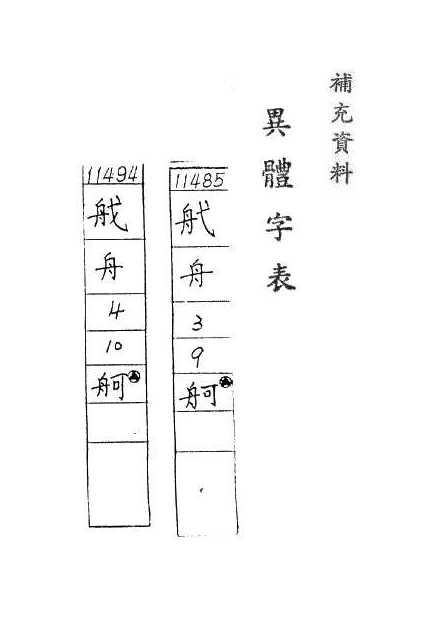 補充資料
異體字表
11485
舟
3
9
舸
11494
舟
4
10
舸